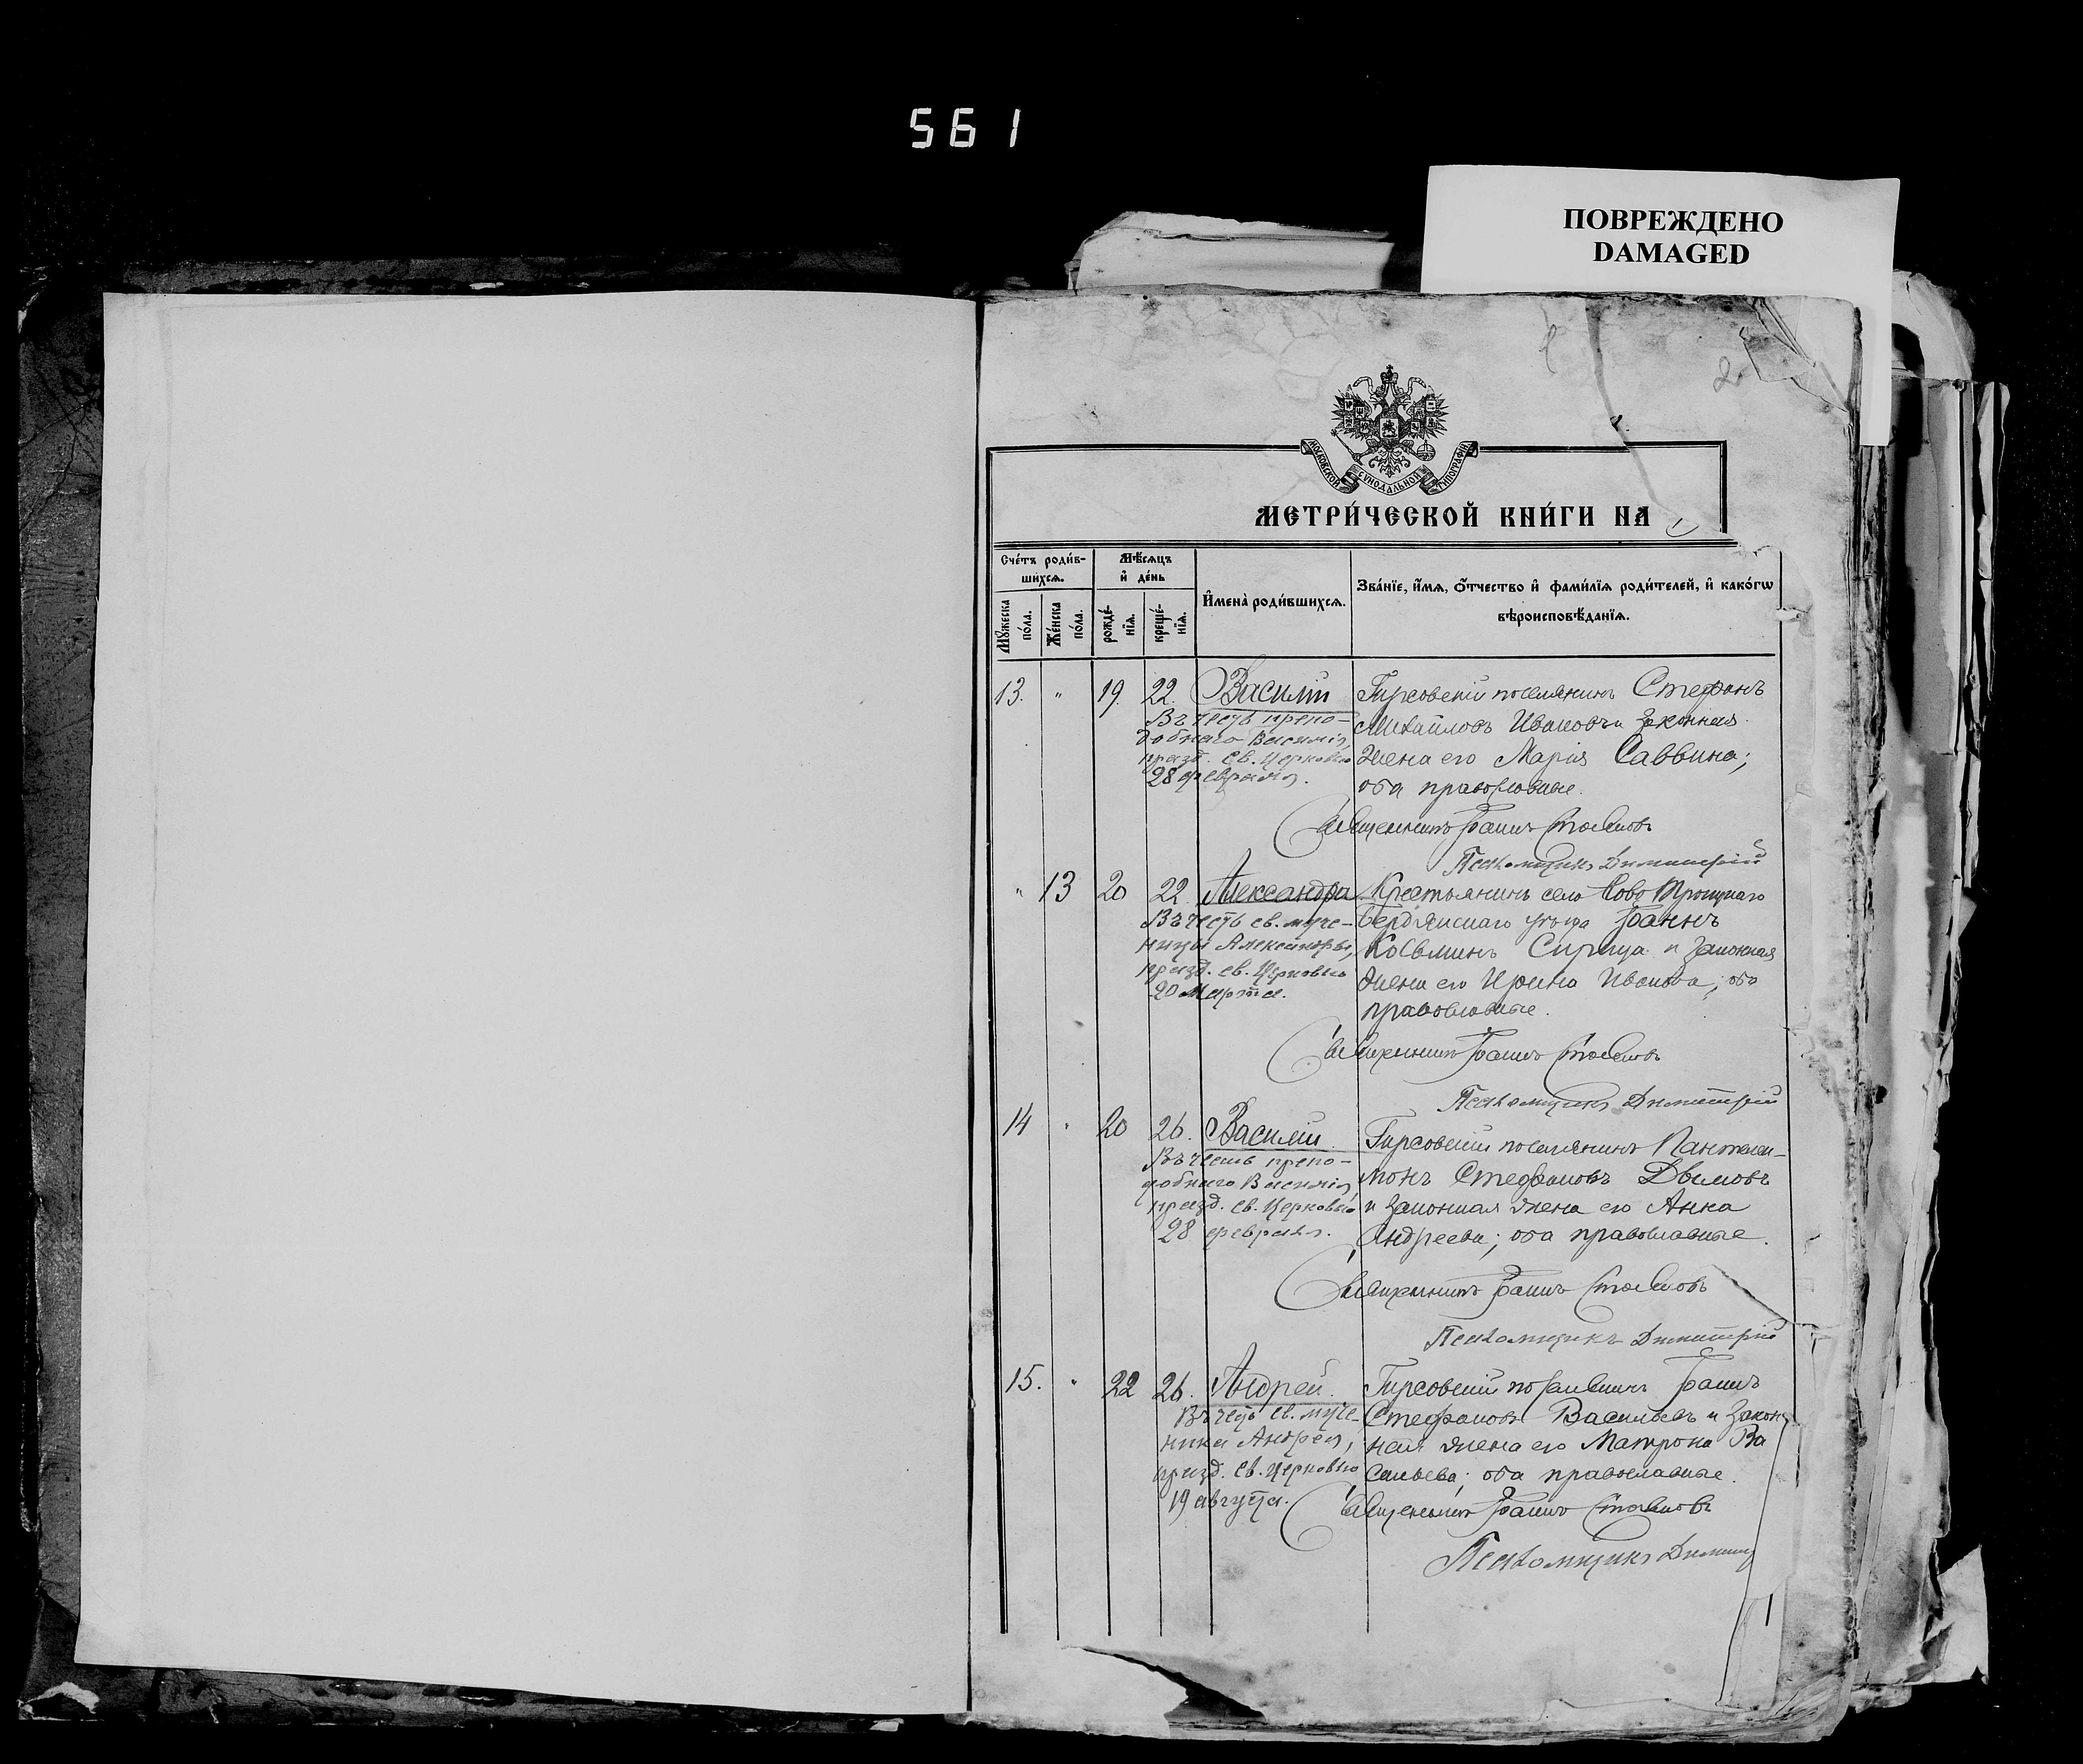 561
ПОВРЕЖДЕНО
DAMAGED
2
МОСКОВСКОЙ СѴНОДАЛЬНОЙ ТИПОГРАФІИ
МЕТРИ́ЧЕСКОЙ КНИ́ГИ НА
Сче́тъ роди́в-
шихся.
Мѣ́сяцъ
и҆ де́нь
И҆мена̀ роди́вшихся.
Зва́нїе, и҆́мя, ѻ҆́тчество и҆ фами́лїя роди́телей, и҆ како́гѡ
вѣроисповѣ́данїя.
Мꙋ́жеска
по́ла.
Же́нска
по́ла.
рожде́-
нїя.
креще́-
нїя.
13. " 19. 22. Василій
Въ честь препо-
добнаго Василія,
празд. св. Церковью
28 февраля.
Гирсовскій поселянинъ Стефанъ
Михайловъ Ивановъ и законная
жена его Марія Саввина;
оба православные.
Священникъ Іоаннъ
Псаломщикъ Димитрій
" 13 20 22 Александра
Въ честь св. муче-
ницы Александры,
празд. св. Церковью
20 Марта.
Крестьянинъ села Ново Троицкаго
Бердянскаго уѣзда Іоаннъ
Косьминъ и законная
жена его Ирина Иванова; оба
православные.
Священникъ Іоаннъ
Псаломщикъ Димитрій
14 " 20 26. Василій.
Въ честь препо-
добнаго Василія,
празд. св. Церковью
28 февраля.
Гирсовскій поселянинъ Пантелеи-
монъ Стефановъ Двимовъ
и законная жена его Анна
Андреева; оба православные.
Священникъ Іоаннъ
Псаломщикъ Димитрій
15. " 22 26. Андрей.
Въ честь св. муче-
ника Андрея,
празд. св. Церковью
19 августа.
Гирсовскій поселянинъ Іоаннъ
Стефановъ Васильевъ и закон
ная жена его Матрона Ва
сильева; оба православные.
Священникъ Іоаннъ
Псаломщикъ Димит